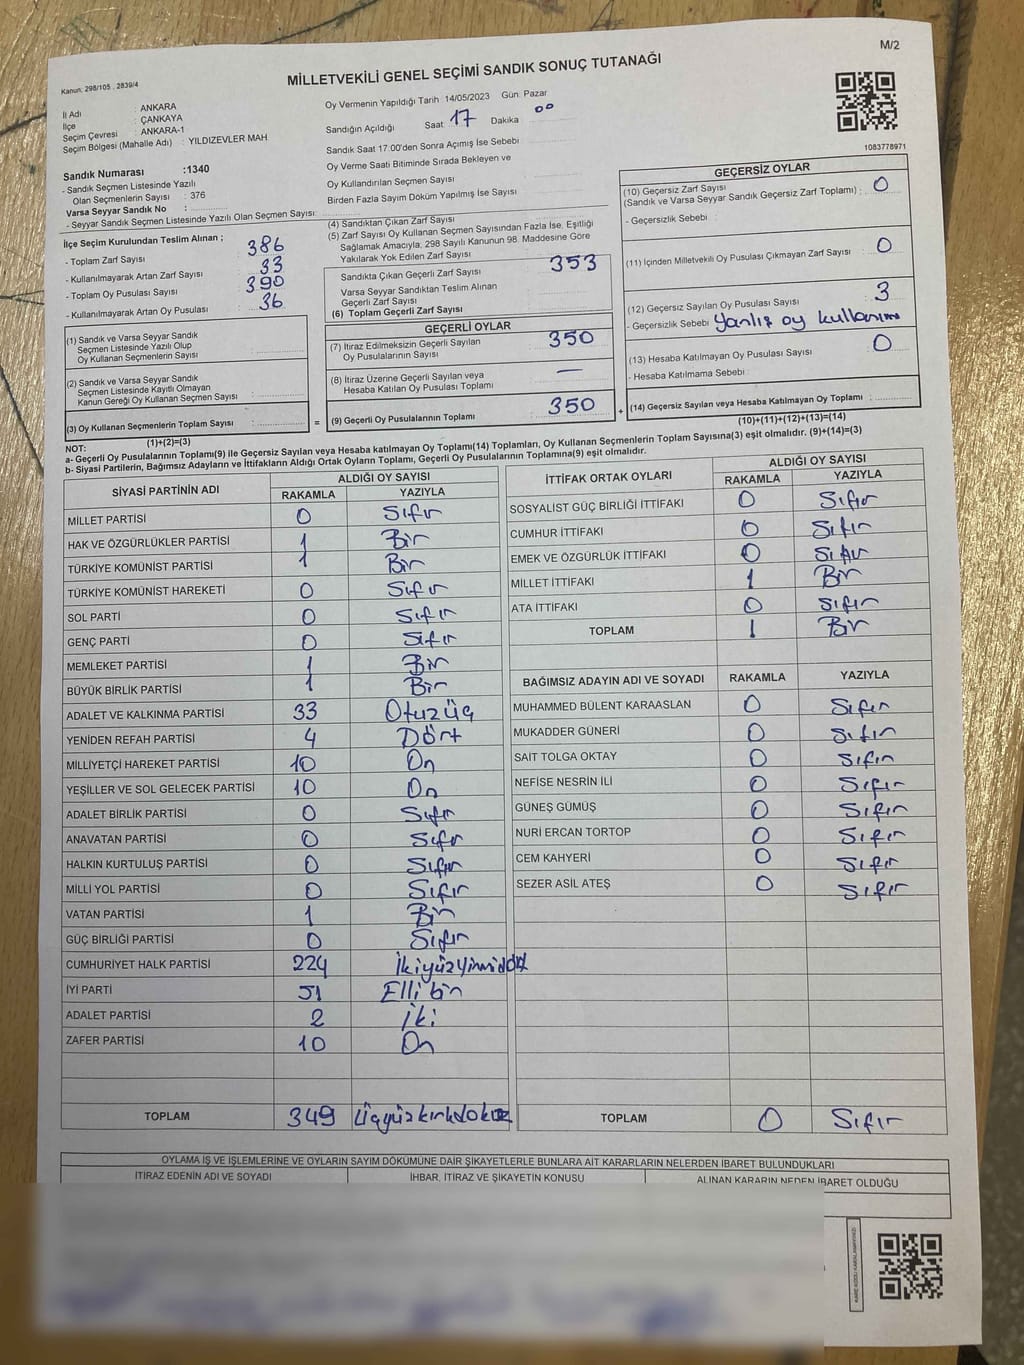 M/2
Kanun: 298/105 , 2839/4
MİLLETVEKİLİ GENEL SEÇİMİ SANDIK SONUÇ TUTANAĞI
İl Adı : ANKARA
İlçe : ÇANKAYA
Seçim Çevresi : ANKARA-1
Seçim Bölgesi (Mahalle Adı) : YILDIZEVLER MAH
Sandık Numarası :1340
- Sandık Seçmen Listesinde Yazılı
Olan Seçmenlerin Sayısı : 376
Varsa Seyyar Sandık No :
- Seyyar Sandık Seçmen Listesinde Yazılı Olan Seçmen Sayısı:
Oy Vermenin Yapıldığı Tarih :14/05/2023 Gün: Pazar
Sandığın Açıldığı Saat 17 Dakika 00
Sandık Saat 17:00'den Sonra Açımış İse Sebebi
Oy Verme Saati Bitiminde Sırada Bekleyen ve
Oy Kullandırılan Seçmen Sayısı
Birden Fazla Sayım Döküm Yapılmış İse Sayısı
1083778971
İlçe Seçim Kurulundan Teslim Alınan ;
- Toplam Zarf Sayısı : 386
- Kullanılmayarak Artan Zarf Sayısı : 33
- Toplam Oy Pusulası Sayısı : 390
- Kullanılmayarak Artan Oy Pusulası : 36
(1) Sandık ve Varsa Seyyar Sandık
Seçmen Listesinde Yazılı Olup
Oy Kullanan Seçmenlerin Sayısı :
(2) Sandık ve Varsa Seyyar Sandık
Seçmen Listesinde Kayıtlı Olmayan
Kanun Gereği Oy Kullanan Seçmen Sayısı :
(3) Oy Kullanan Seçmenlerin Toplam Sayısı :
(1)+(2)=(3)
(4) Sandıktan Çıkan Zarf Sayısı
(5) Zarf Sayısı Oy Kullanan Seçmen Sayısından Fazla İse, Eşitliği
Sağlamak Amacıyla, 298 Sayılı Kanunun 98. Maddesine Göre
Yakılarak Yok Edilen Zarf Sayısı :
Sandıkta Çıkan Geçerli Zarf Sayısı : 353
Varsa Seyyar Sandıktan Teslim Alınan
Geçerli Zarf Sayısı :
(6) Toplam Geçerli Zarf Sayısı :
GEÇERLİ OYLAR
(7) İtiraz Edilmeksizin Geçerli Sayılan
Oy Pusulalarının Sayısı : 350
(8) İtiraz Üzerine Geçerli Sayılan veya
Hesaba Katılan Oy Pusulası Toplamı : —
= (9) Geçerli Oy Pusulalarının Toplamı : 350 +
GEÇERSİZ OYLAR
(10) Geçersiz Zarf Sayısı
(Sandık ve Varsa Seyyar Sandık Geçersiz Zarf Toplamı) : 0
- Geçersizlik Sebebi :
(11) İçinden Milletvekili Oy Pusulası Çıkmayan Zarf Sayısı : 0
(12) Geçersiz Sayılan Oy Pusulası Sayısı : 3
- Geçersizlik Sebebi : Yanlış oy kullanımı
(13) Hesaba Katılmayan Oy Pusulası Sayısı : 0
- Hesaba Katılmama Sebebi :
(14) Geçersiz Sayılan veya Hesaba Katılmayan Oy Toplamı :
(10)+(11)+(12)+(13)=(14)
NOT:
a- Geçerli Oy Pusulalarının Toplamı(9) ile Geçersiz Sayılan veya Hesaba katılmayan Oy Toplamı(14) Toplamları, Oy Kullanan Seçmenlerin Toplam Sayısına(3) eşit olmalıdır. (9)+(14)=(3)
b- Siyasi Partilerin, Bağımsız Adayların ve İttifakların Aldığı Ortak Oyların Toplamı, Geçerli Oy Pusulalarının Toplamına(9) eşit olmalıdır.
SİYASİ PARTİNİN ADI ALDIĞI OY SAYISI
RAKAMLA YAZIYLA
MİLLET PARTİSİ 0 Sıfır
HAK VE ÖZGÜRLÜKLER PARTİSİ 1 Bir
TÜRKİYE KOMÜNİST PARTİSİ 1 Bir
TÜRKİYE KOMÜNİST HAREKETİ 0 Sıfır
SOL PARTİ 0 Sıfır
GENÇ PARTİ 0 Sıfır
MEMLEKET PARTİSİ 1 Bir
BÜYÜK BİRLİK PARTİSİ 1 Bir
ADALET VE KALKINMA PARTİSİ 33 Otuzüç
YENİDEN REFAH PARTİSİ 4 Dört
MİLLİYETÇİ HAREKET PARTİSİ 10 On
YEŞİLLER VE SOL GELECEK PARTİSİ 10 On
ADALET BİRLİK PARTİSİ 0 Sıfır
ANAVATAN PARTİSİ 0 Sıfır
HALKIN KURTULUŞ PARTİSİ 0 Sıfır
MİLLİ YOL PARTİSİ 0 Sıfır
VATAN PARTİSİ 1 Bir
GÜÇ BİRLİĞİ PARTİSİ 0 Sıfır
CUMHURİYET HALK PARTİSİ 224 İkiyüzyirmidört
İYİ PARTİ 51 Elli bir
ADALET PARTİSİ 2 İki
ZAFER PARTİSİ 10 On
TOPLAM 349 Üçyüzkırkdokuz
İTTİFAK ORTAK OYLARI ALDIĞI OY SAYISI
RAKAMLA YAZIYLA
SOSYALİST GÜÇ BİRLİĞİ İTTİFAKI 0 Sıfır
CUMHUR İTTİFAKI 0 Sıfır
EMEK VE ÖZGÜRLÜK İTTİFAKI 0 Sıfır
MİLLET İTTİFAKI 1 Bir
ATA İTTİFAKI 0 Sıfır
TOPLAM 1 Bir
BAĞIMSIZ ADAYIN ADI VE SOYADI RAKAMLA YAZIYLA
MUHAMMED BÜLENT KARAASLAN 0 Sıfır
MUKADDER GÜNERİ 0 Sıfır
SAİT TOLGA OKTAY 0 Sıfır
NEFİSE NESRİN İLİ 0 Sıfır
GÜNEŞ GÜMÜŞ 0 Sıfır
NURİ ERCAN TORTOP 0 Sıfır
CEM KAHYERİ 0 Sıfır
SEZER ASİL ATEŞ 0 Sıfır
TOPLAM 0 Sıfır
OYLAMA İŞ VE İŞLEMLERİNE VE OYLARIN SAYIM DÖKÜMÜNE DAİR ŞİKAYETLERLE BUNLARA AİT KARARLARIN NELERDEN İBARET BULUNDUKLARI
İTİRAZ EDENİN ADI VE SOYADI İHBAR, İTİRAZ VE ŞİKAYETİN KONUSU ALINAN KARARIN NEDEN İBARET OLDUĞU